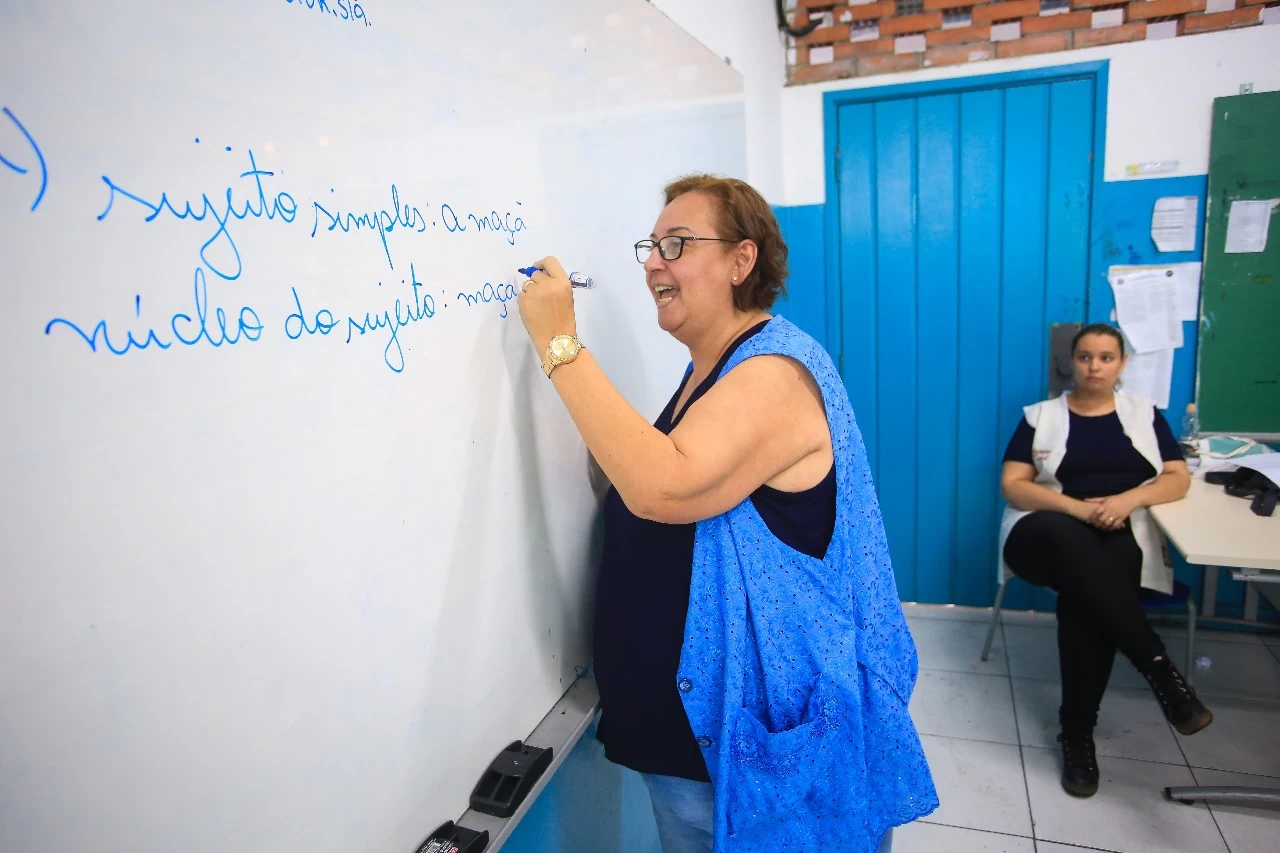 ) sujeito simples: a maçã
núcleo do sujeito: maça